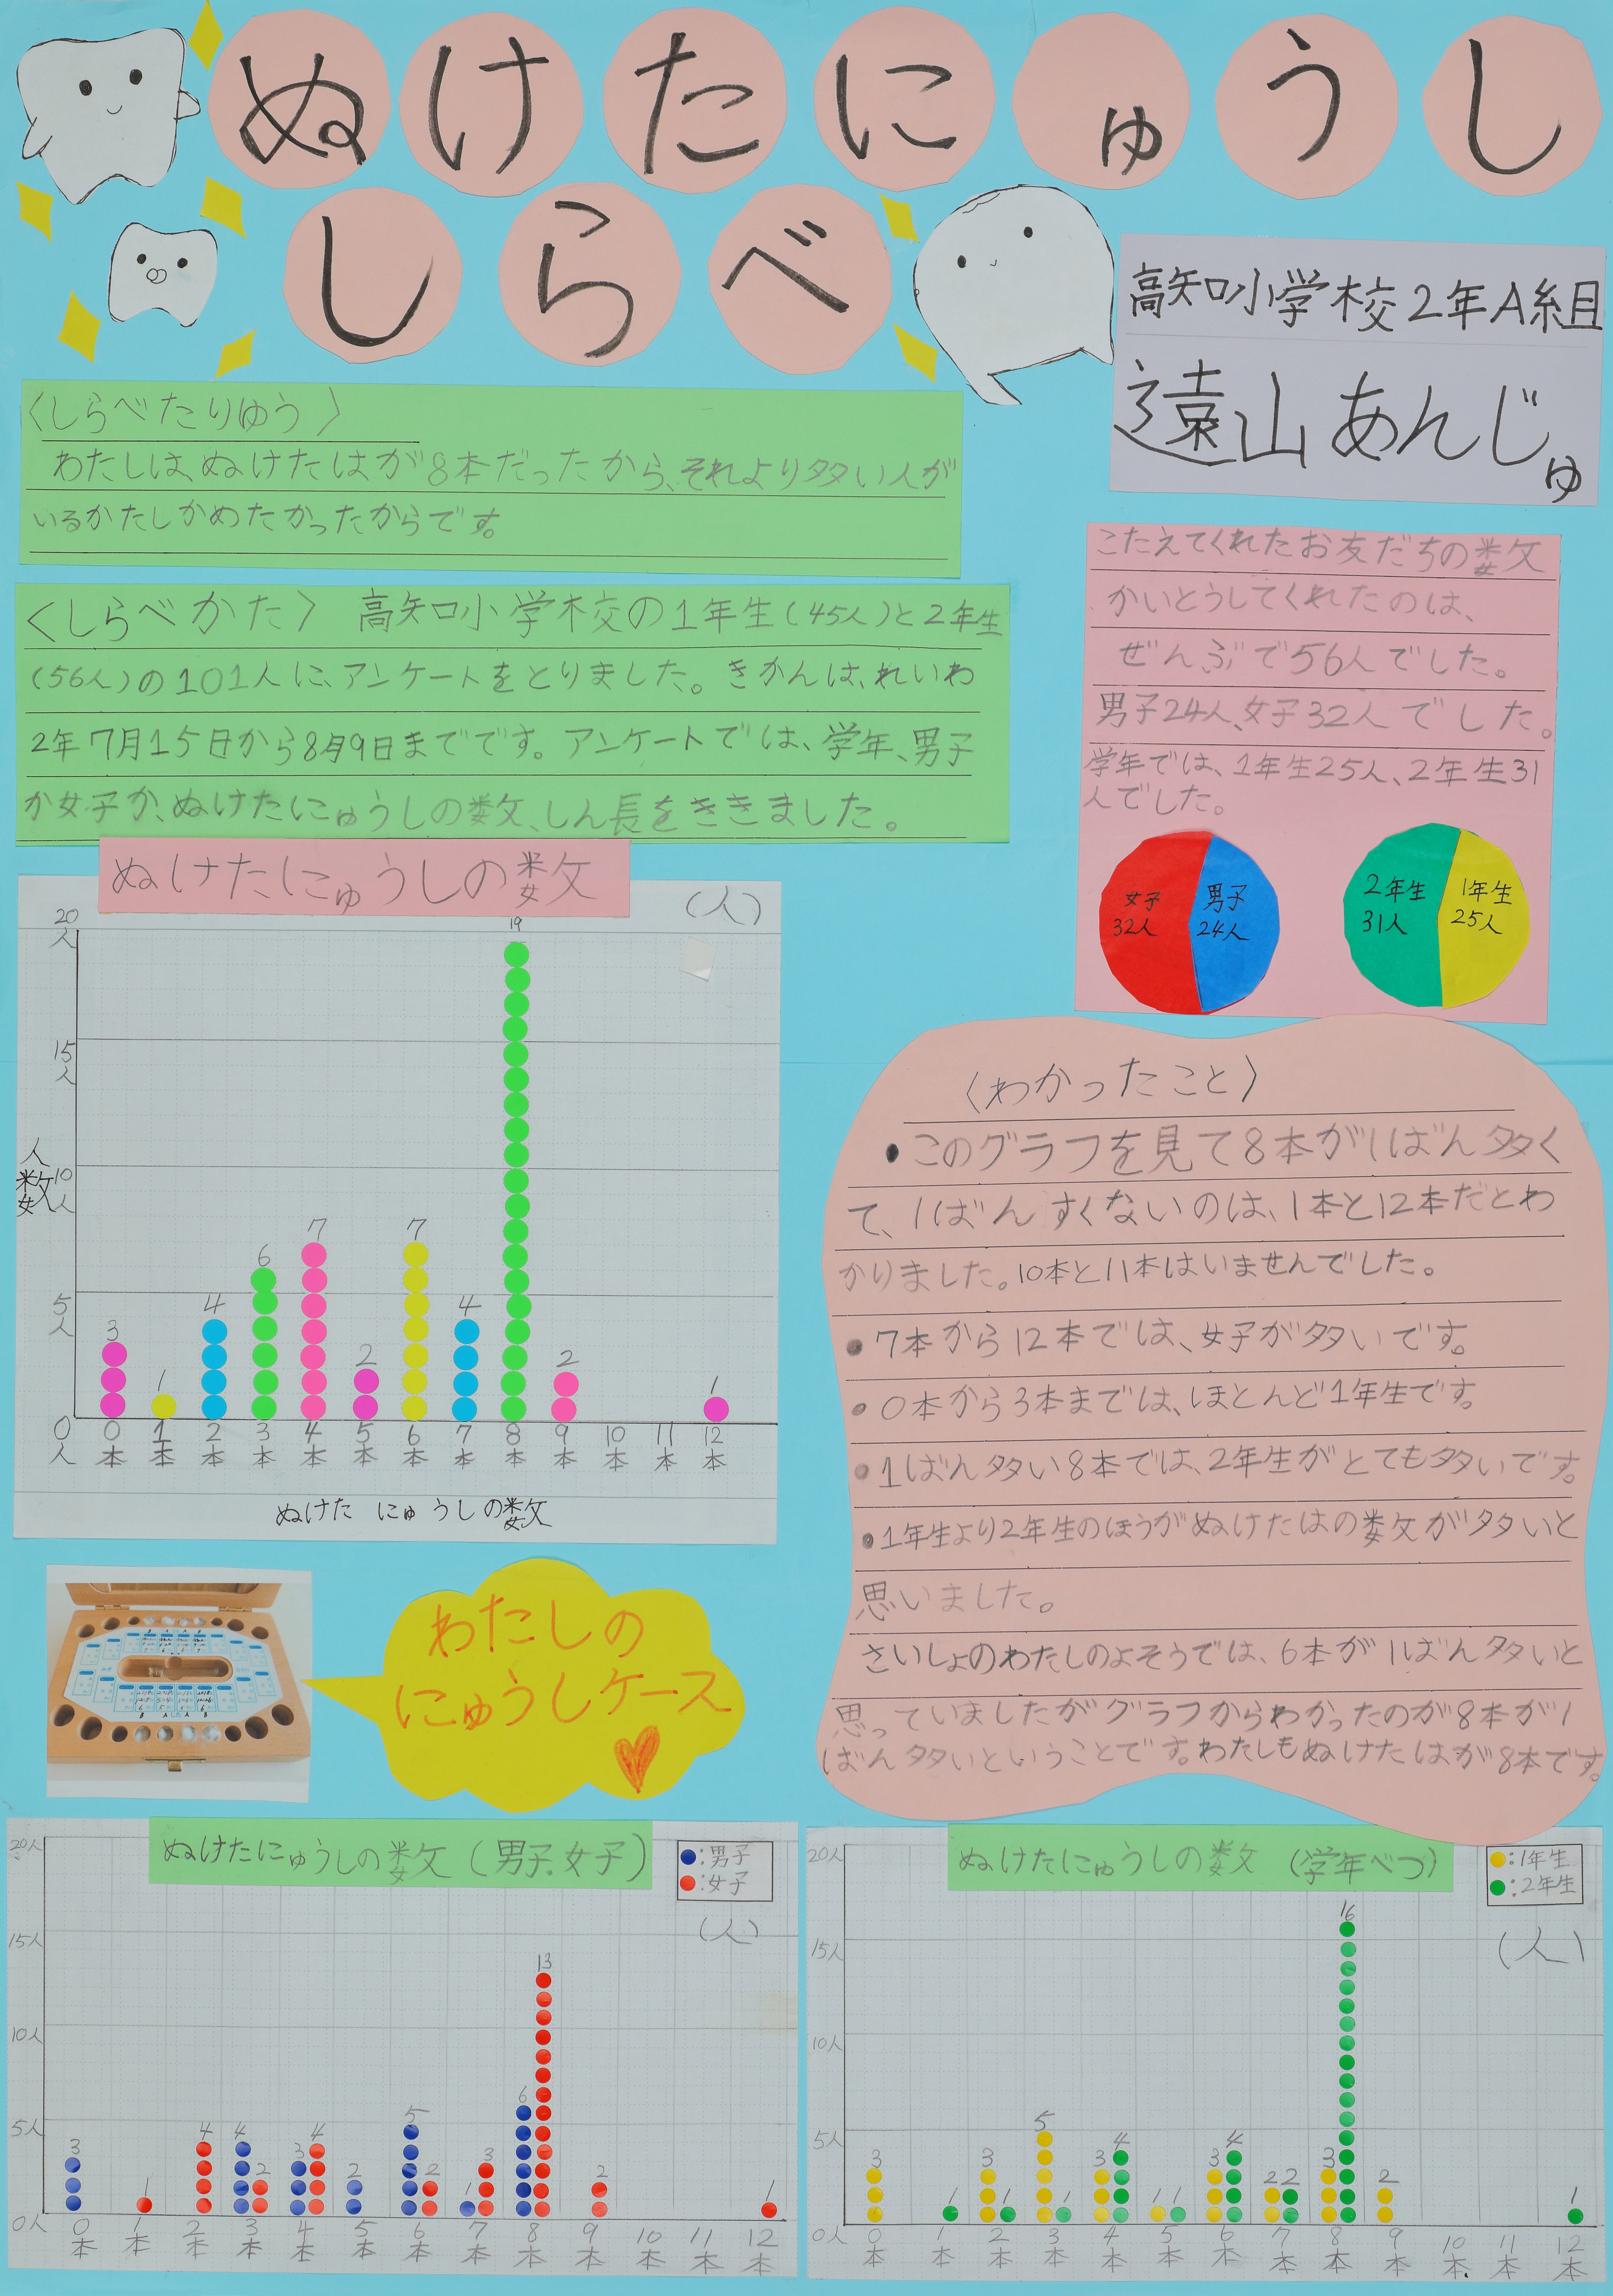 ぬけたにゅうし
しらべ
高知口小学校2年A組
遠山あんじゅ
〈しらべたりゆう〉
わたしは、ぬけたはが8本だったから、それより多い人が
いるかたしかめたかったからです。
〈しらべかた〉 高知口小学校の1年生(45人)と2年生
(56人)の101人に、アンケートをとりました。きかんは、れいわ
2年7月15日から8月9日までです。アンケートでは、学年、男子
か女子か、ぬけたにゅうしの数、しん長をききました。
こたえてくれたお友だちの数
かいとうしてくれたのは、
ぜんぶで56人でした。
男子24人、女子32人でした。
学年では、1年生25人、2年生31
人でした。
女子 男子
32人 24人
2年生 1年生
31人 25人
ぬけたにゅうしの数
(人)
20人
15人
人数
10人
5人
0人
3 1 4 6 7 2 7 4 19 2 1
0本 1本 2本 3本 4本 5本 6本 7本 8本 9本 10本 11本 12本
ぬけた にゅうしの数
〈わかったこと〉
•このグラフを見て8本が1ばん多く
て、1ばんすくないのは、1本と12本だとわ
かりました。10本と11本はいませんでした。
•7本から12本では、女子が多いです。
•0本から3本までは、ほとんど1年生です。
•1ばん多い8本では、2年生がとても多いです。
•1年生より2年生のほうがぬけたはの数が多いと
思いました。
さいしょのわたしのよそうでは、6本が1ばん多いと
思っていましたがグラフからわかったのが8本が1
ばん多いということです。わたしもぬけたはが8本です。
わたしの
にゅうしケース
ぬけたにゅうしの数(男子、女子)
:男子
:女子
(人)
20人
15人
10人
5人
0人
3 1 4 4 2 3 4 2 5 2 1 3 6 13 2 1
0本 1本 2本 3本 4本 5本 6本 7本 8本 9本 10本 11本 12本
ぬけたにゅうしの数 (学年べつ)
:1年生
:2年生
(人)
20人
15人
10人
5人
0人
3 1 3 1 5 1 3 4 1 1 3 4 2 2 3 16 2 1
0本 1本 2本 3本 4本 5本 6本 7本 8本 9本 10本 11本 12本